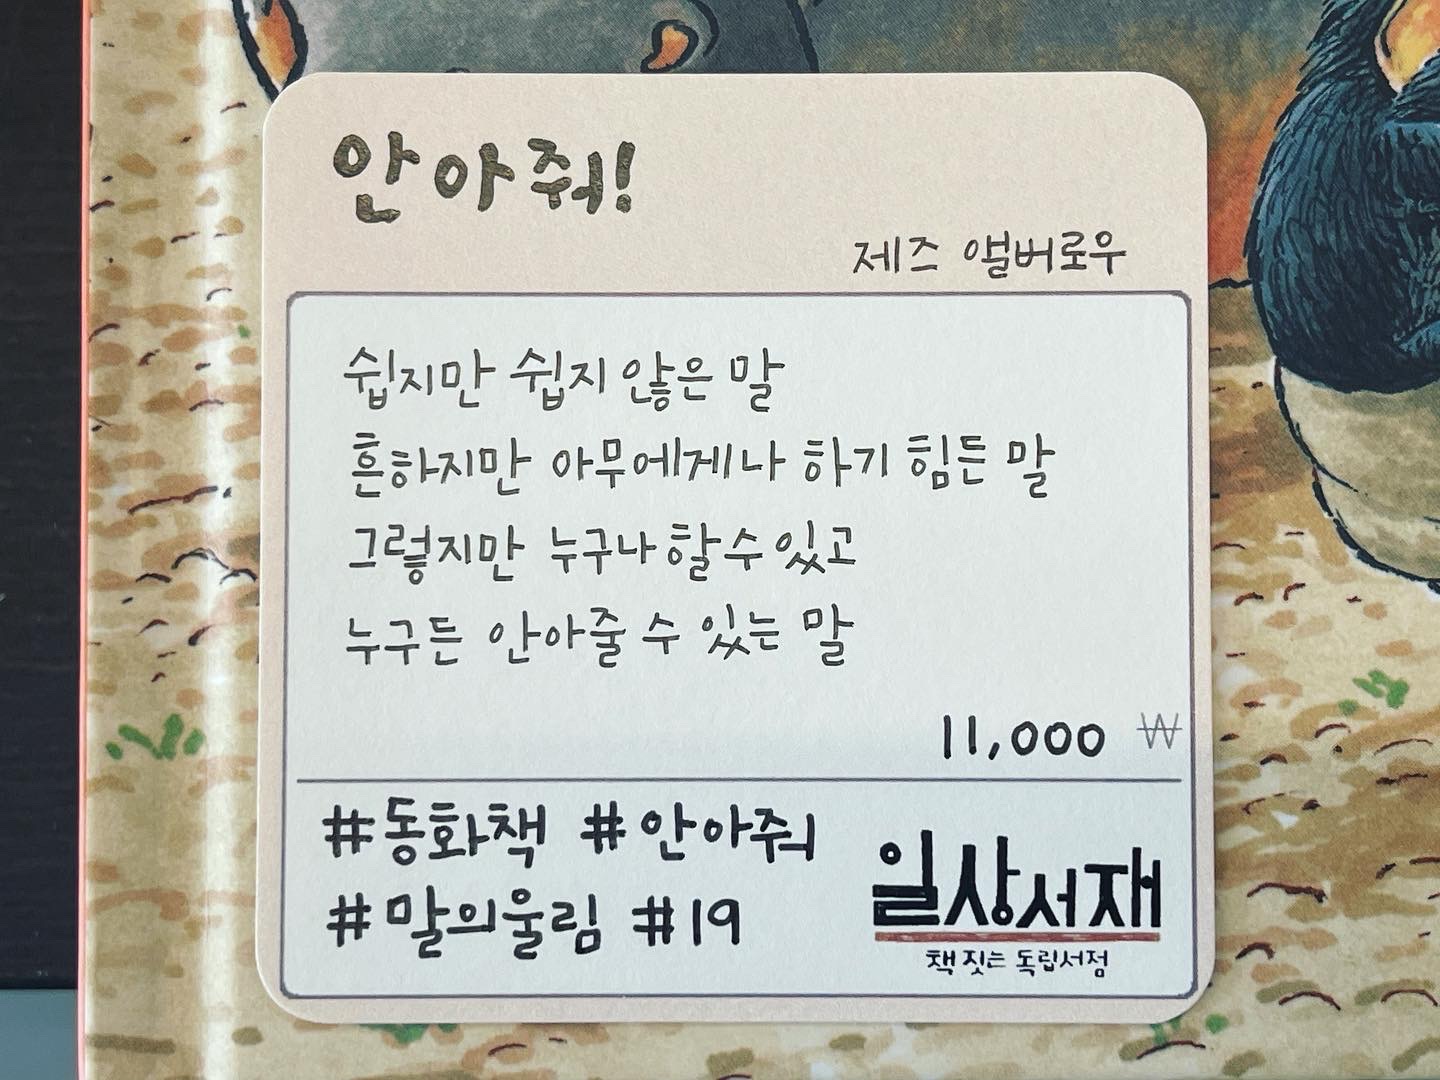 안아줘!
제즈 앨버로우
쉽지만 쉽지 않은 말
흔하지만 아무에게나 하기 힘든 말
그렇지만 누구나 할 수 있고
누구든 안아줄 수 있는 말
11,000 ₩
#동화책 #안아줘
#말의울림 #19
일상서재
책 짓는 독립서점